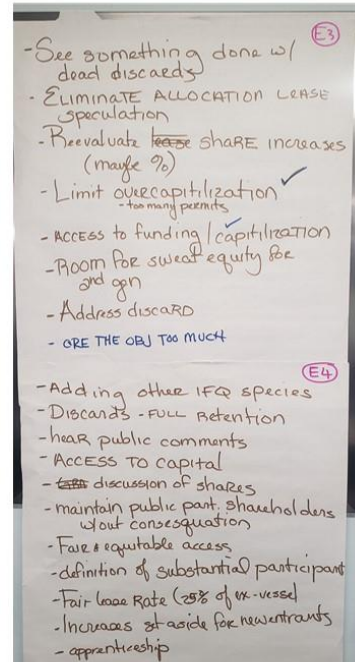 E3
- See something done w/
dead discards
- ELIMINATE ALLOCATION LEASE
speculation
- Reevaluate lease shARE increases
(maybe %)
- Limit overcapitilization ✓
- too many permits
- ACCESS to funding / capitilization
- Room for sweat equity for
2nd gen
- Address discard
- ARE THE OBJ TOO MUCH
E4
- Adding other IFQ species
- Discards - FULL Retention
- heaR public comments
- ACCESS TO CAPITAL
- discussion of shares
- maintain public part. shareholders
w/out consesquation
- Fair & equitable access
- definition of substantial participant
- Fair lease Rate (25% of ex-vessel
- Increases st aside for new entrants
- apprenticeship